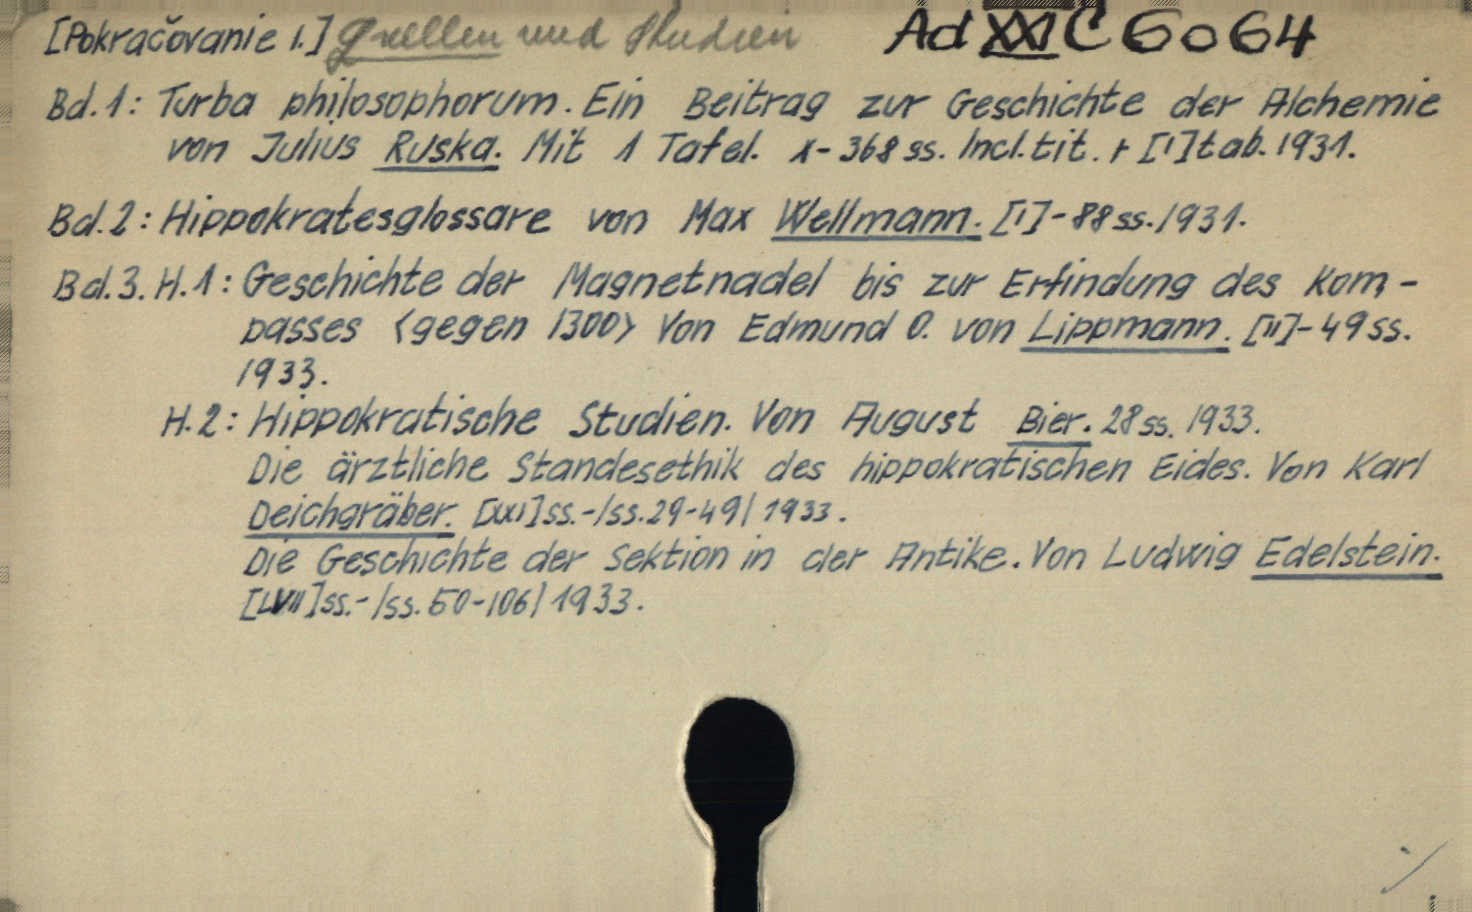 [Pokračovanie 1.] Quellen und Studien Ad XXI C 6064
Bd. 1: Turba philosophorum. Ein Beitrag zur Geschichte der Alchemie
von Julius Ruska. Mit 1 Tafel. X-368 ss. Incl. tit. + [I] tab. 1931.
Bd. 2: Hippokratesglossare von Max Wellmann. [I]-88 ss. 1931.
Bd. 3. H. 1: Geschichte der Magnetnadel bis zur Erfindung des Kom-
passes <gegen 1300> Von Edmund O. von Lippmann. [II]-49 ss.
1933.
H. 2: Hippokratische Studien. Von August Bier. 28 ss. 1933.
Die ärztliche Standesethik des hippokratischen Eides. Von Karl
Deichgräber. [XXI] ss.-/ss. 29-49/ 1933.
Die Geschichte der Sektion in der Antike. Von Ludwig Edelstein.
[LVII] ss.-/ss. 50-106/ 1933.
·/.